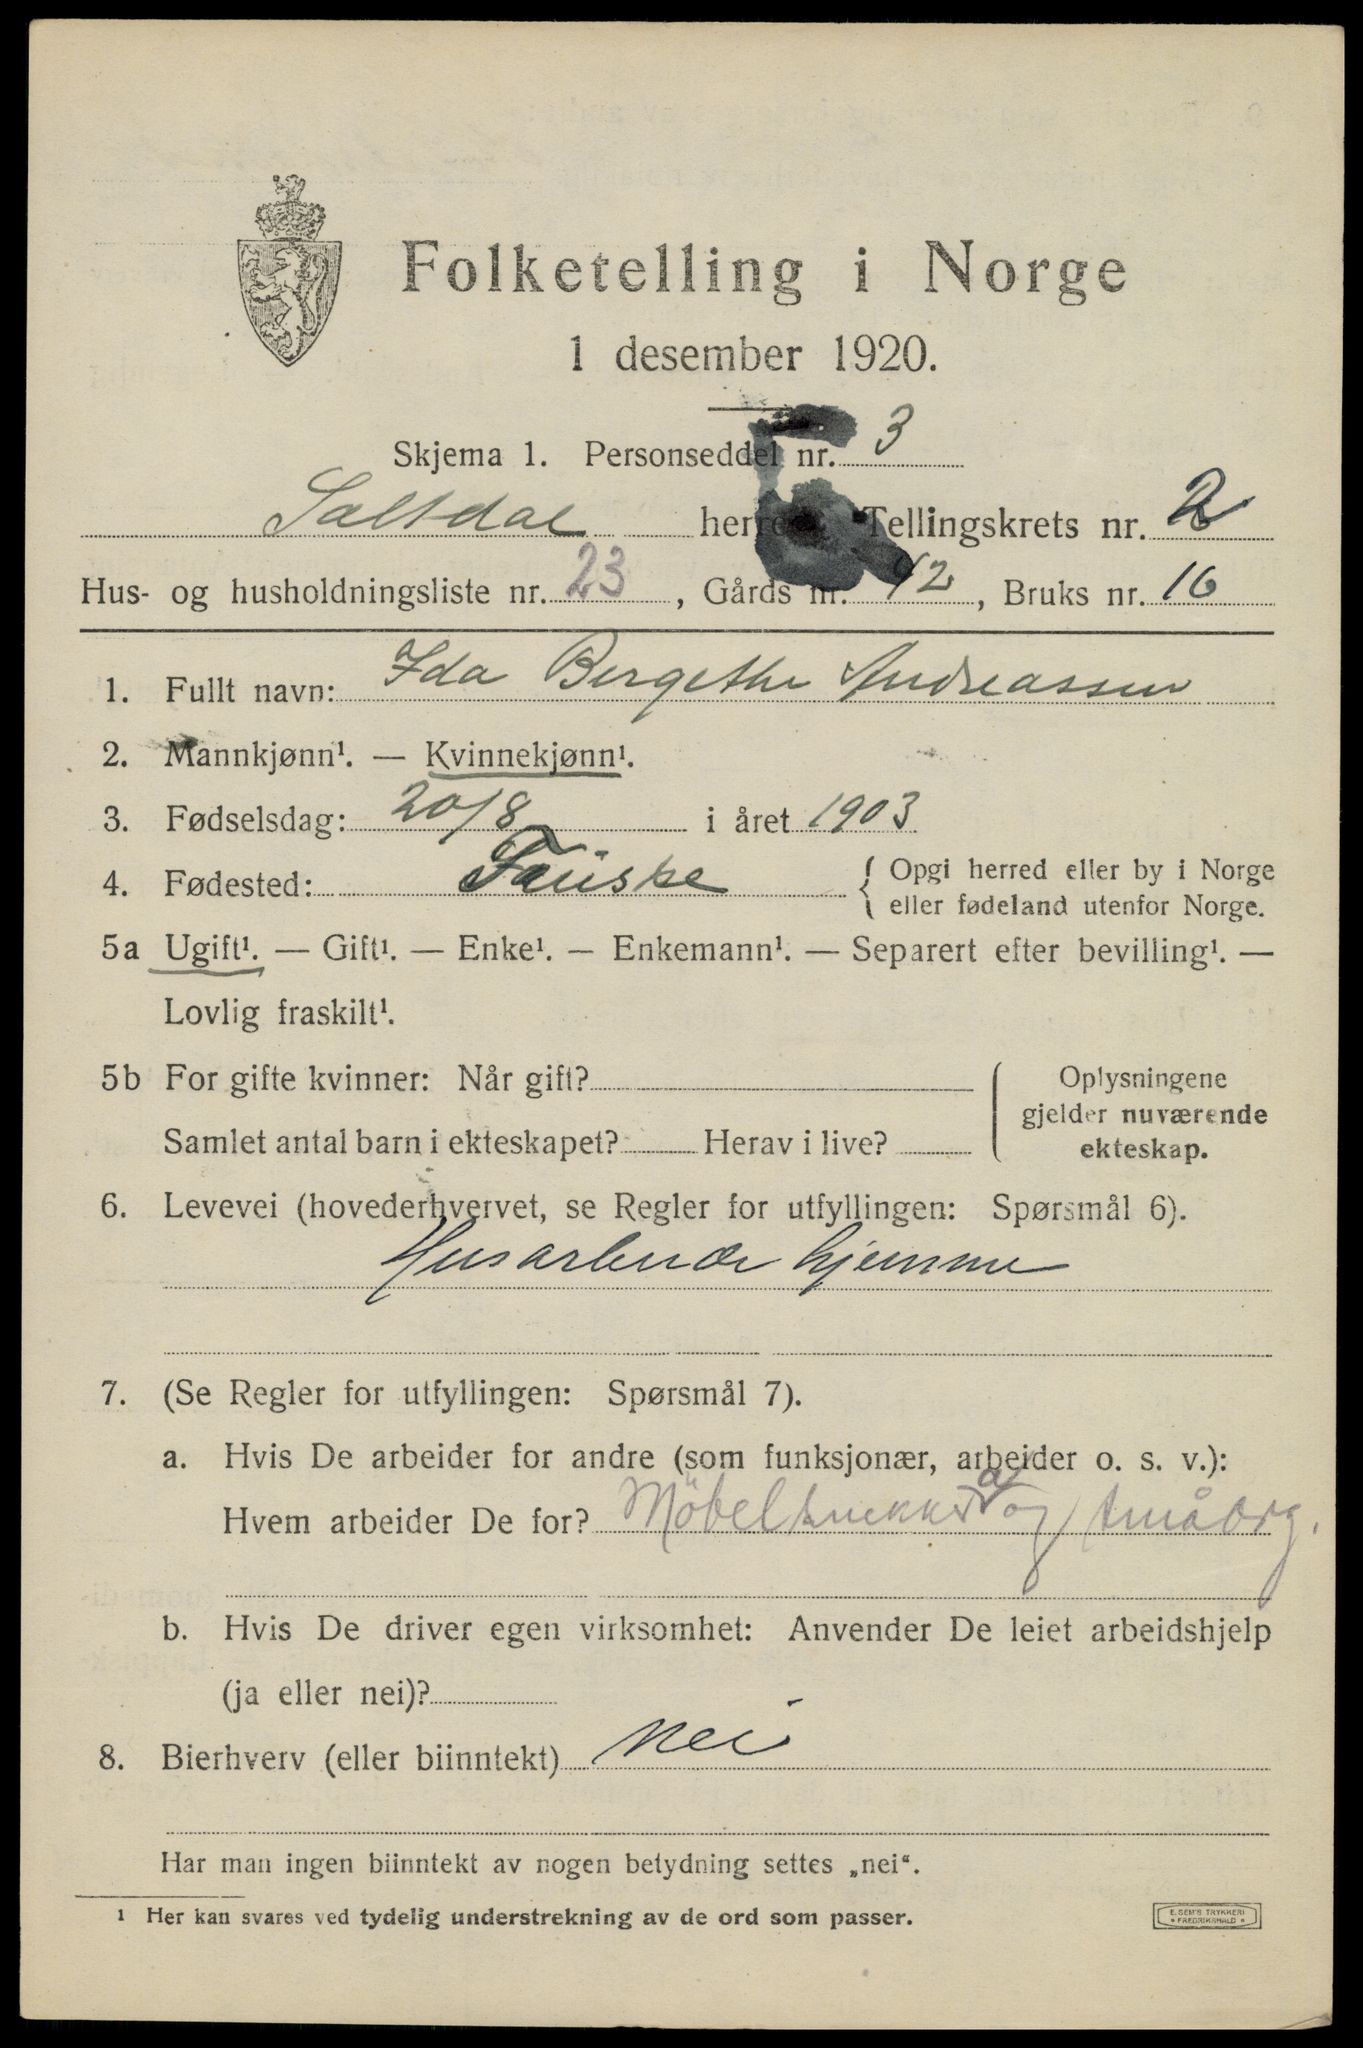 Folketelling i Norge
1 desember 1920.
Skjema 1. Personseddel nr. 3
Saltdal herred. Tellingskrets nr. 2
Hus- og husholdningsliste nr. 23, Gårds nr. 42, Bruks nr. 16
1. Fullt navn: Ida Bergethe Andreassen
2. Mannkjønn¹. — Kvinnekjønn¹.
3. Fødselsdag: 20/8 i året 1903
4. Fødested: Fauske { Opgi herred eller by i Norge
eller fødeland utenfor Norge.
5a Ugift¹. — Gift¹. — Enke¹. — Enkemann¹. — Separert efter bevilling¹. —
Lovlig fraskilt¹.
5b For gifte kvinner: Når gift?
Samlet antal barn i ekteskapet? Herav i live?
Oplysningene
gjelder nuværende
ekteskap.
6. Levevei (hovederhvervet, se Regler for utfyllingen: Spørsmål 6).
Husarbeide hjemme
7. (Se Regler for utfyllingen: Spørsmål 7).
a. Hvis De arbeider for andre (som funksjonær, arbeider o. s. v.):
Hvem arbeider De for? Möbelsnekker og småbrg.
b. Hvis De driver egen virksomhet: Anvender De leiet arbeidshjelp
(ja eller nei)?
8. Bierhverv (eller biinntekt) nei
Har man ingen biinntekt av nogen betydning settes „nei“.
¹ Her kan svares ved tydelig understrekning av de ord som passer.
E. SEM'S TRYKKERI
* FREDRIKSHALD *